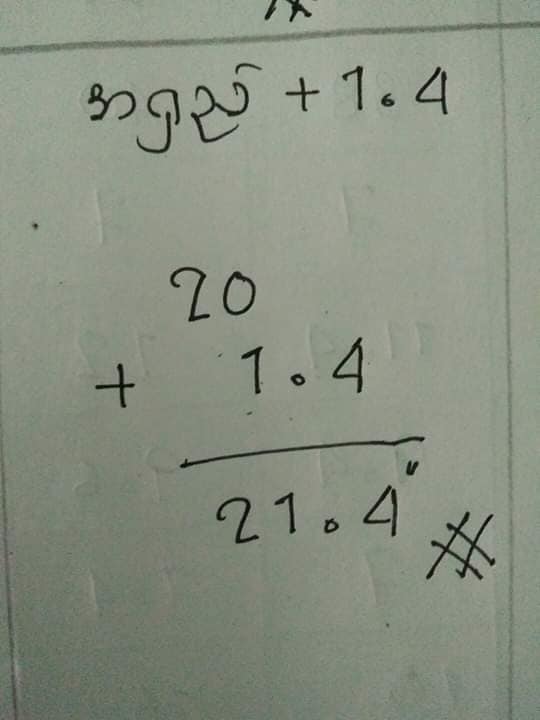 အရှည် + 1.4
20
+ 1.4
21.4"